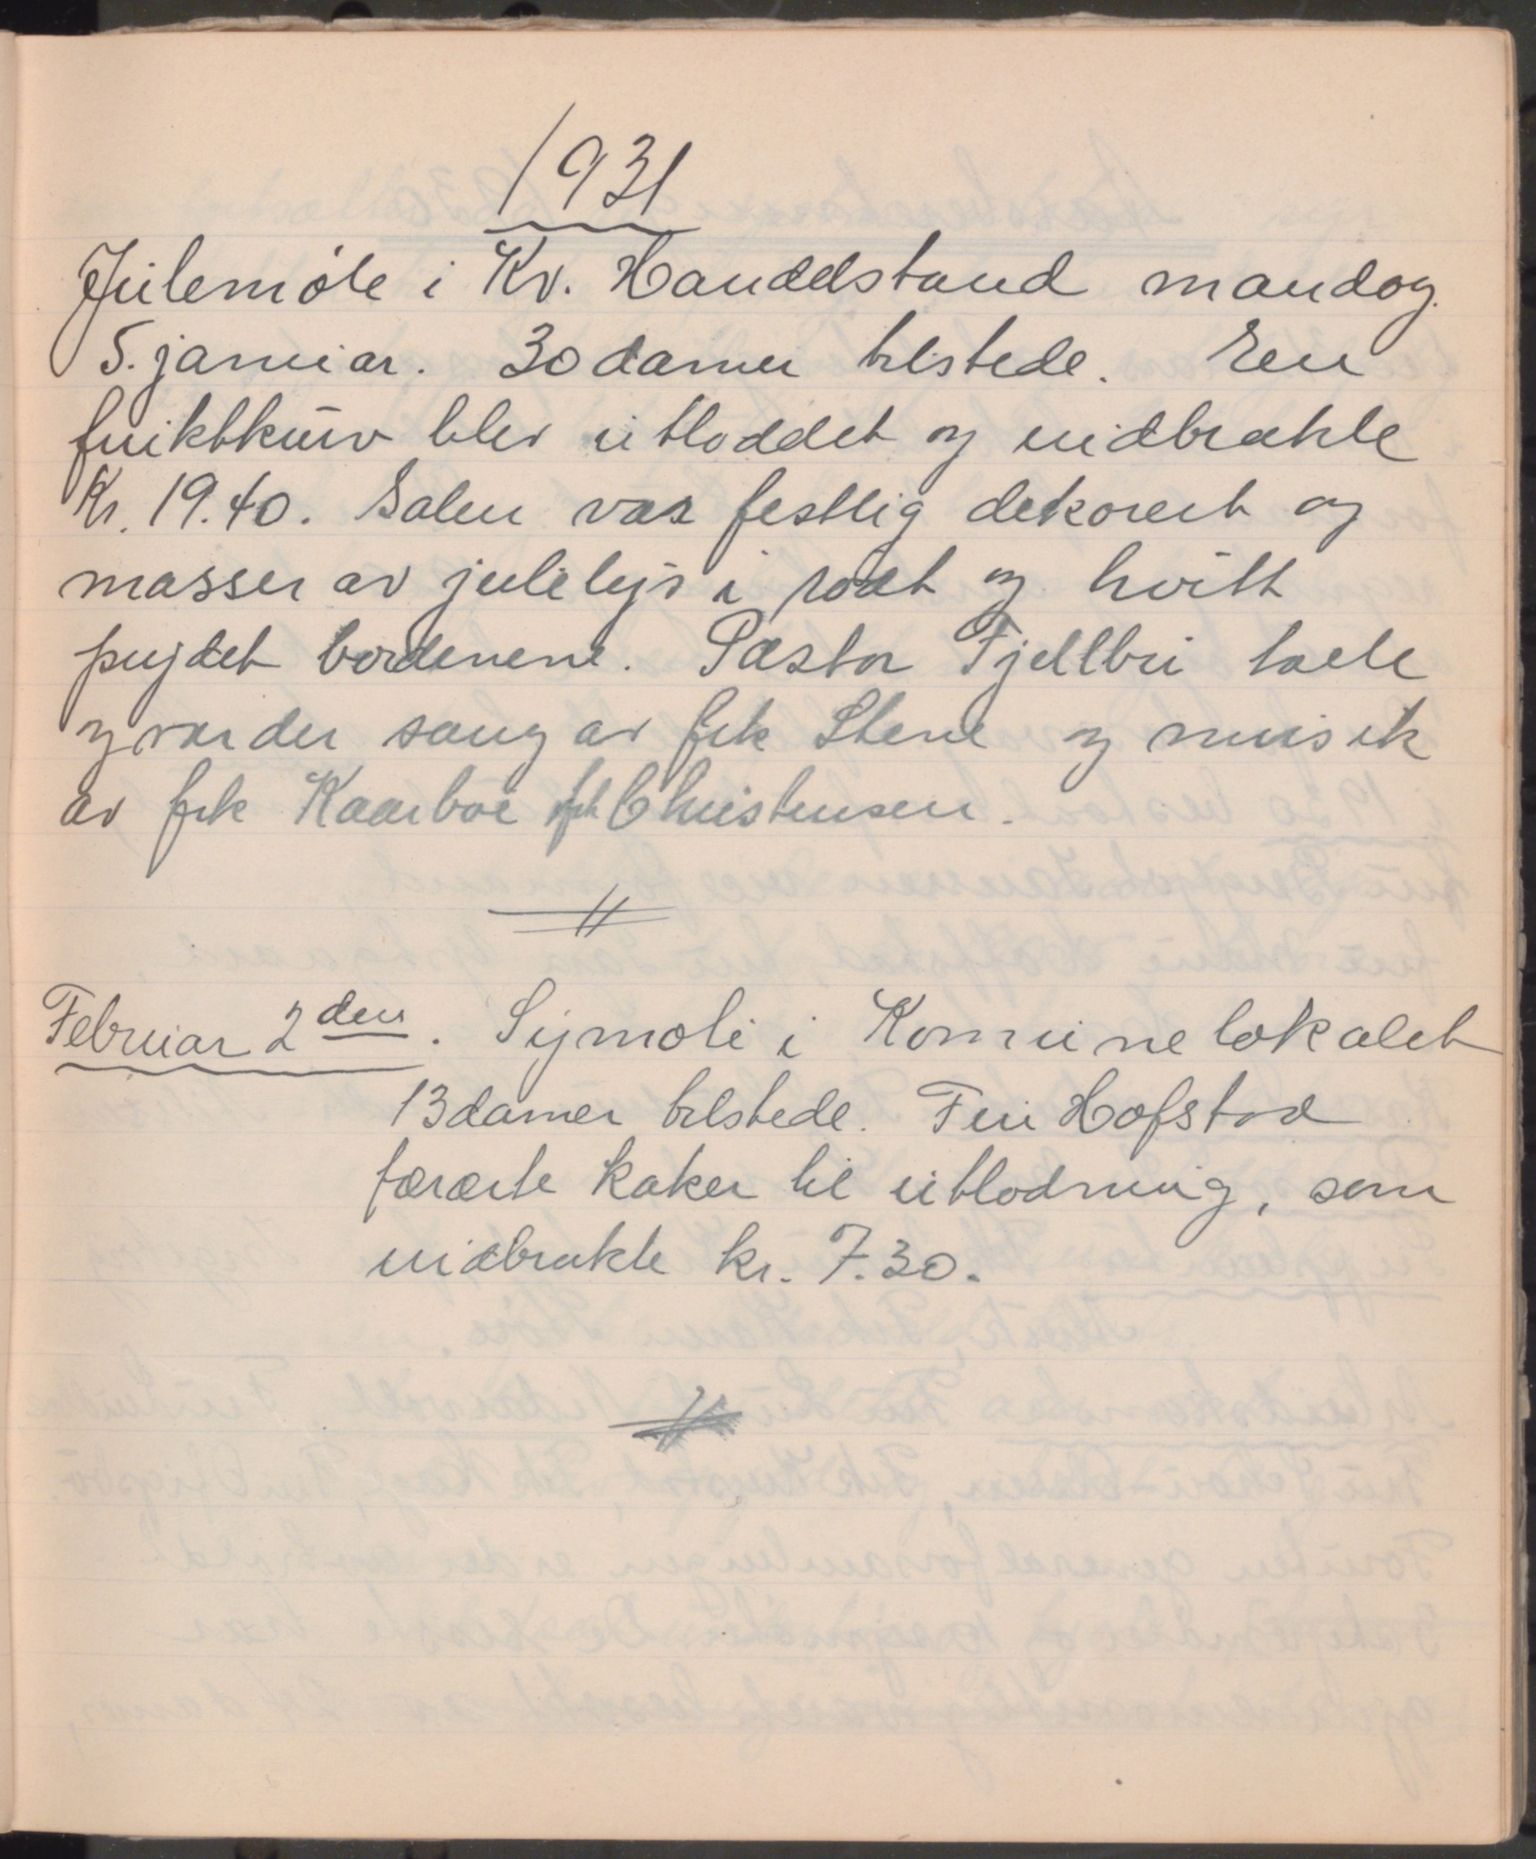 1931
Julemøte i Kv. Handelstand mandag
5. januar. 30 damer tilstede. En
fruktkurv blev utloddet og indbrakte
Kr. 19.40. Salen var festlig dekorert og
masser av julelys i rødt og hvitt
pryjdet bordenene. Pastor Fjellbu talte
og var der sang av frk Stene og musik
av frk Kaarboe frk Christensen.
Februar 2den. Symøte i Komunelokalet
13 damer tilstede. Fru Hofstad
forærte kaker til utlodning, som
indbrakte kr. 7.30.